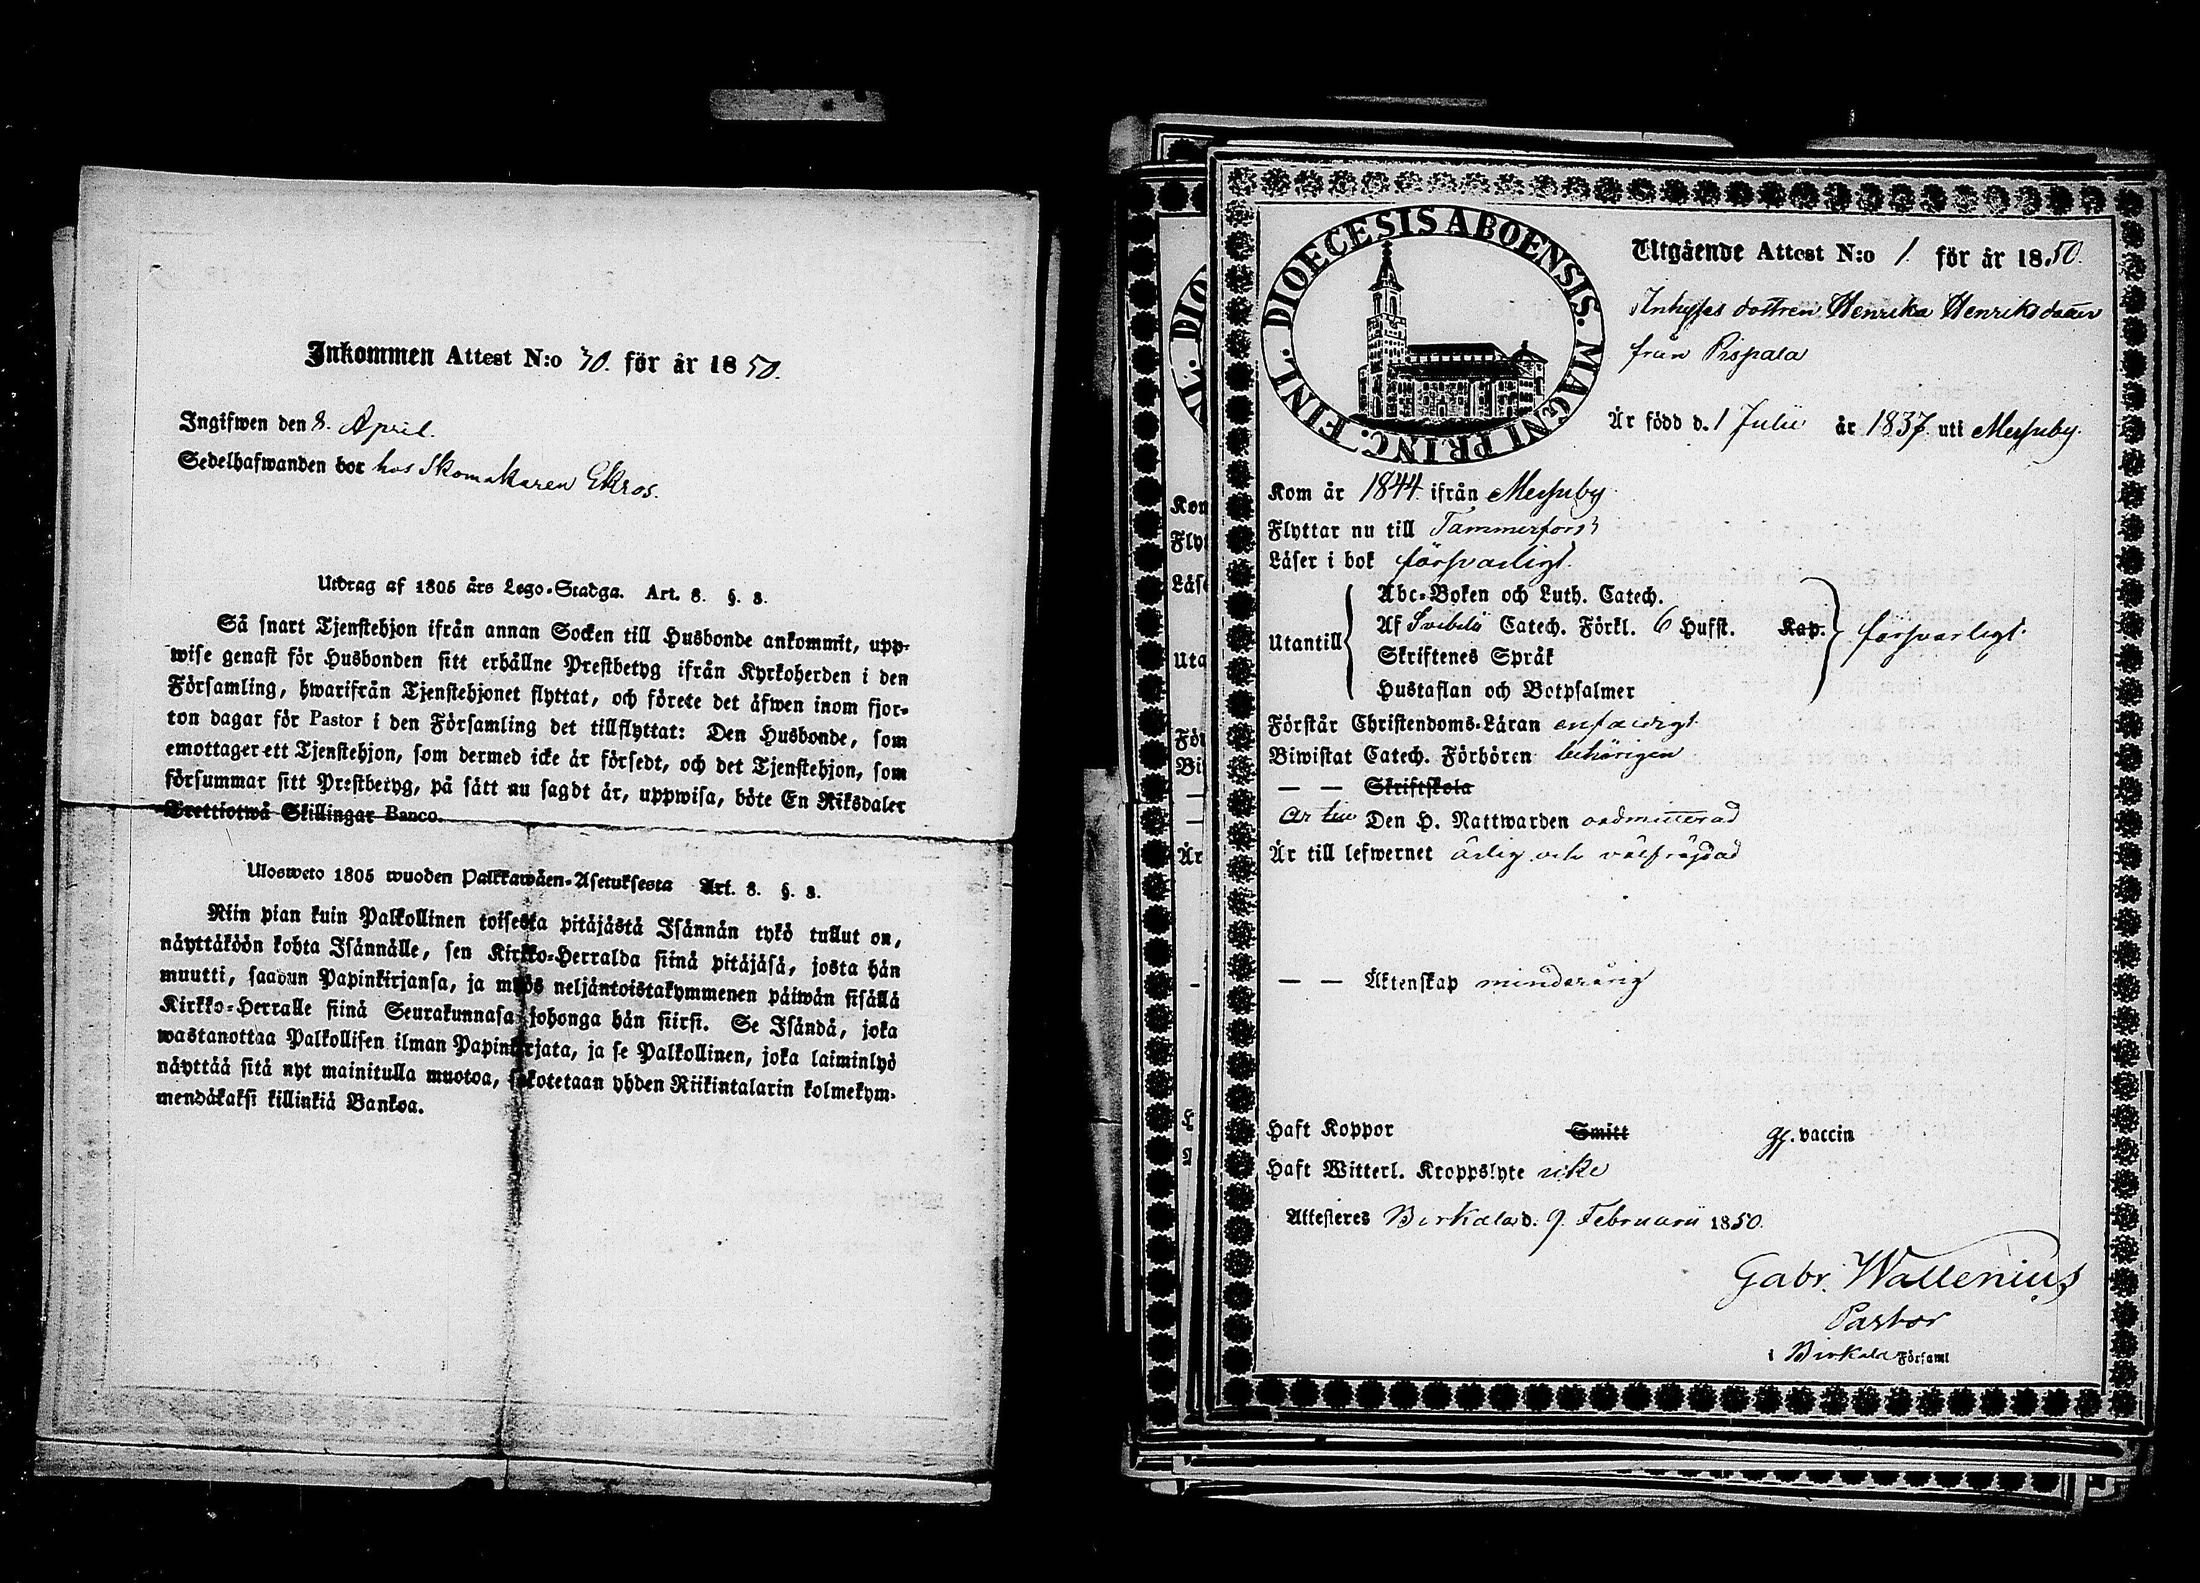 Inkommen Attest N:o 70. för år 1850.
Ingifwen den 8. April.
Sedelhafwanden bor hos Skomakaren Ekros.
Utdrag af 1805 års Lego-Stadga. Art. 8. §. 3.
Så snart Tjenstehjon ifrån annan Socken till Husbonde ankommit, upp-
wise genast för Husbonden sitt erhållne Prestbetyg ifrån Kyrkoherden i den
Församling, hwarifrån Tjenstehjonet flyttat, och förete det äfwen inom fjor-
ton dagar för Pastor i den Församling det tillflyttat: Den Husbonde, som
emottager ett Tjenstehjon, som dermed icke är försedt, och det Tjenstehjon, som
försummar sitt Prestbetyg, på sätt nu sagdt är, uppwisa, böte En Riksdaler
Trettiotwå Skillingar Banco.
Ulosweto 1805 wuoden Palkkawäen-Asetuksesta Art. 8. §. 3.
Niin pian kuin Palkollinen toisesta pitäjästä Isännän tykö tullut on,
näyttäköön kohta Isännälle, sen Kirkko-Herralda siinä pitäjäsä, josta hän
muutti, saadun Papinkirjansa, ja myös neljäntoistakymmenen päiwän sisällä
Kirkko-Herralle siinä Seurakunnasa johonga hän siirsi. Se Isändä, joka
wastanottaa Palkollisen ilman Papinkirjata, ja se Palkollinen, joka laiminlyö
näyttää sitä nyt mainitulla muotoa, sakotetaan yhden Riikintalarin kolmekym-
mendäkaksi killinkiä Bankoa.
DIOECESIS ABOENSIS. MAGNI PRINC. FINL.
Utgående Attest N:o 1 för år 1850.
Inhyses dottren Henrika Henriksdotter
från Pispala
Är född d. 1 Julii år 1837 uti Messuby.
Kom år 1844 ifrån Messuby
Flyttar nu till Tammerfors
Läser i bok försvarligt.
Utantill
Abc-Boken och Luth. Catech.
Af Svebelii Catech. Förkl. 6 Hufst. Kap.
Skriftenes Språk
Hustaflan och Botpsalmer
försvarligt.
Förstår Christendoms-Läran enfaldigt
Biwistat Catech. Förhören behörigen
— — Skriftskola
Är till Den H. Nattwarden oadmitterad
Är till lefwernet ärlig och välfräjdad
— — Äktenskap minderårig
Haft Koppor Smitt gf. vaccin
Haft Witterl. Kroppslyte icke
Attesteres Birkala d. 9 Februarii 1850.
Gabr. Wallenius
Pastor
i Birkala Församl